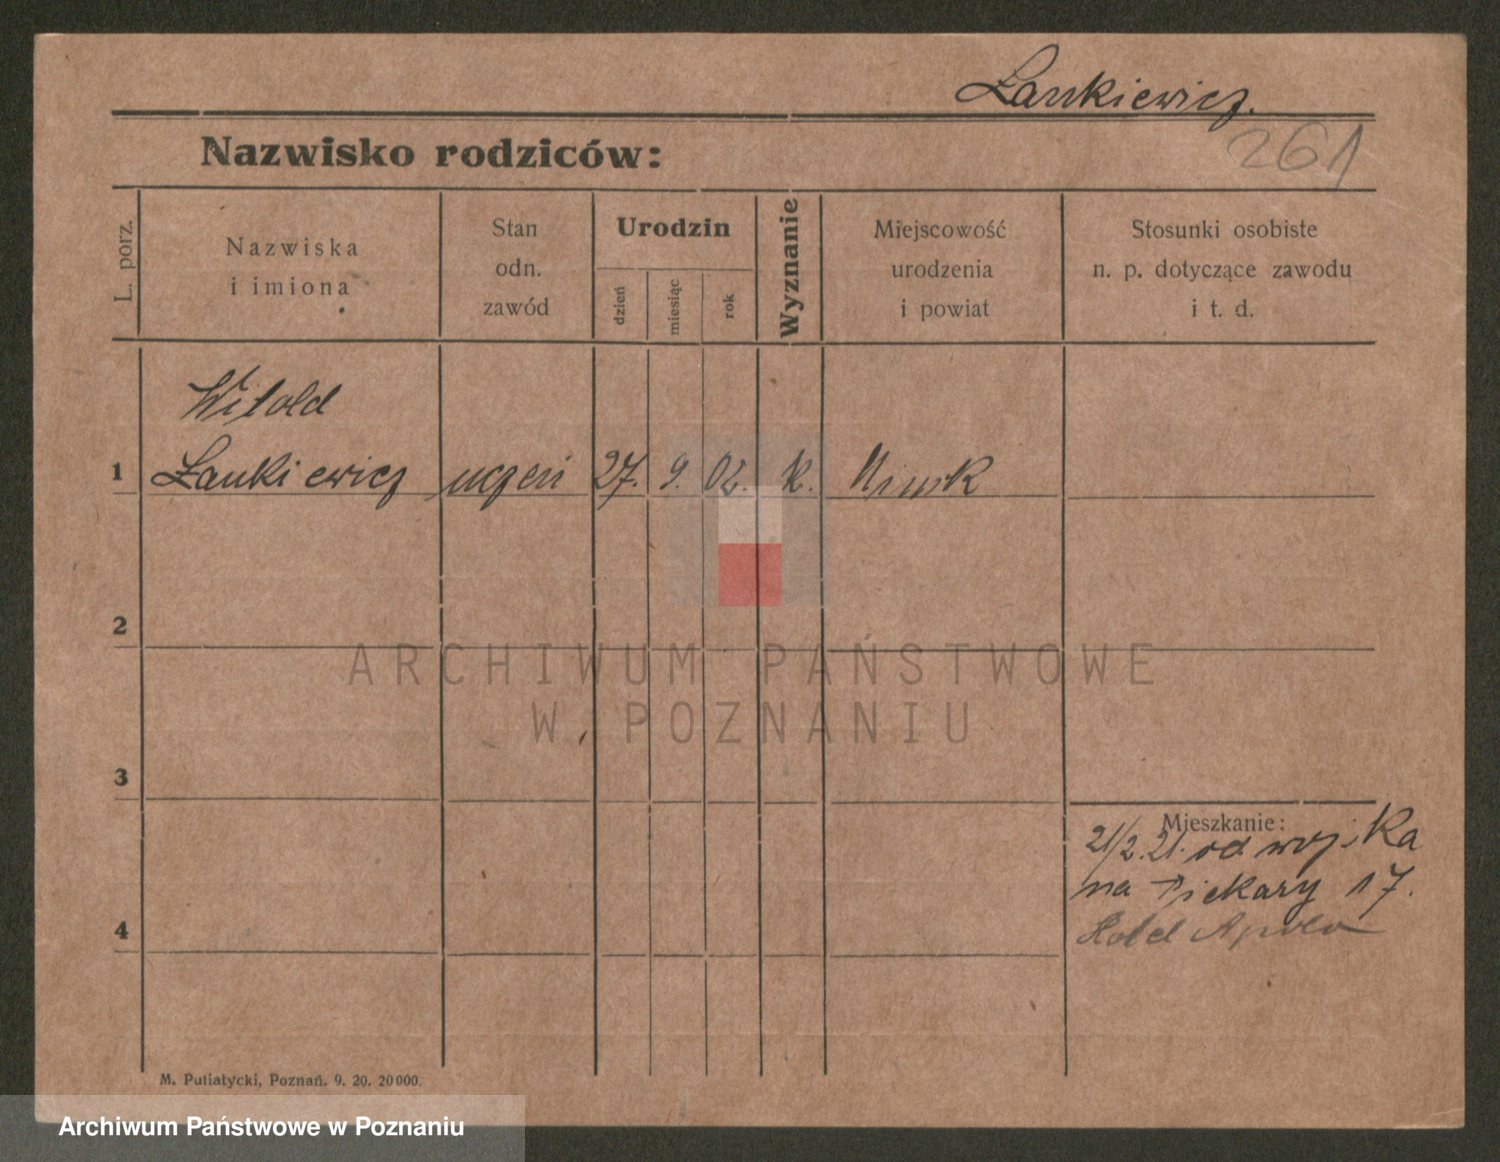 Łankiewicz.
261
Nazwisko rodziców:
L. porz.
Nazwiska
i imiona
Stan
odn.
zawód
Urodzin
dzień
miesiąc
rok
Wyznanie
Miejscowość
urodzenia
i powiat
Stosunki osobiste
n. p. dotyczące zawodu
i t. d.
Witold
1 Łankiewicz uczeń 27. 9. 02. k.
2
ARCHIWUM PAŃSTWOWE
W POZNANIU
3
Mieszkanie:
21/2.21. od wojska
na Piekary 17.
Hotel Apolo
4
M. Putiatycki, Poznań. 9. 20. 20000.
Archiwum Państwowe w Poznaniu